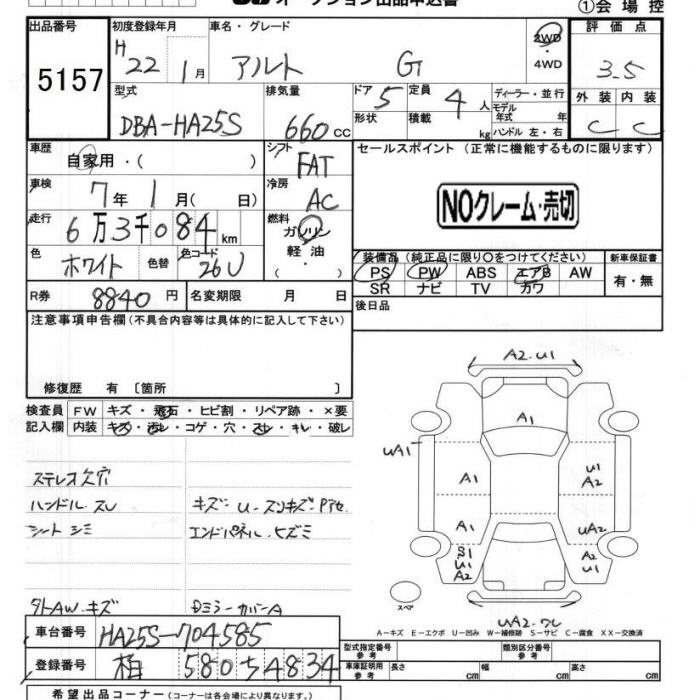 オークション出品申込書
①会場控
出品番号
5157
初度登録年月
H22年1月
車名・グレード
アルト G
2WD
・4WD
評価点
3.5
外装 内装
C C
型式
DBA-HA25S
排気量
660cc
ドア 5
形状
定員 4人
積載 kg
ディーラー・並行
モデル年式 年
ハンドル 左・右
車歴
自家用・( )
シフト
FAT
車検
7年1月( 日)
冷房
AC
走行
6万3千084km
燃料
ガソリン
軽油
( )
色
ホワイト
色替
色コード
26U
R券
8840円
名変期限 月 日
セールスポイント(正常に機能するものに限ります)
NOクレーム・売切
装備品(純正品に限り○をつけてください)
PS PW ABS エアB AW
SR ナビ TV カワ
新車保証書
有・無
後日品
注意事項申告欄(不具合内容等は具体的に記入して下さい)
修復歴 有 〔箇所 〕
検査員記入欄
FW キズ・飛石・ヒビ割・リペア跡・×要
内装 キズ・汚レ・コゲ・穴・スレ・キレ・破レ
ステレオ欠穴
ハンドル スレ
シート シミ
キズ・U・
エンドパネル・ヒズミ
外AW・キズ
Dミラーカバー A
A2.U1
A1
UA1
A1
U1
A2
A1
UA2
S1
U1
A2
A2
U1
スペア
UA2・
A-キズ E-エクボ U-凹み W-補修跡 S-サビ C-腐食 XX-交換済
車台番号
HA25S-704585
登録番号
相 580 そ 4834
型式指定番号 参考
類別区分番号 参考
車庫証明用 参考
長さ cm
幅 cm
高さ cm
希望出品コーナー(コーナーは各会場により異なります。)